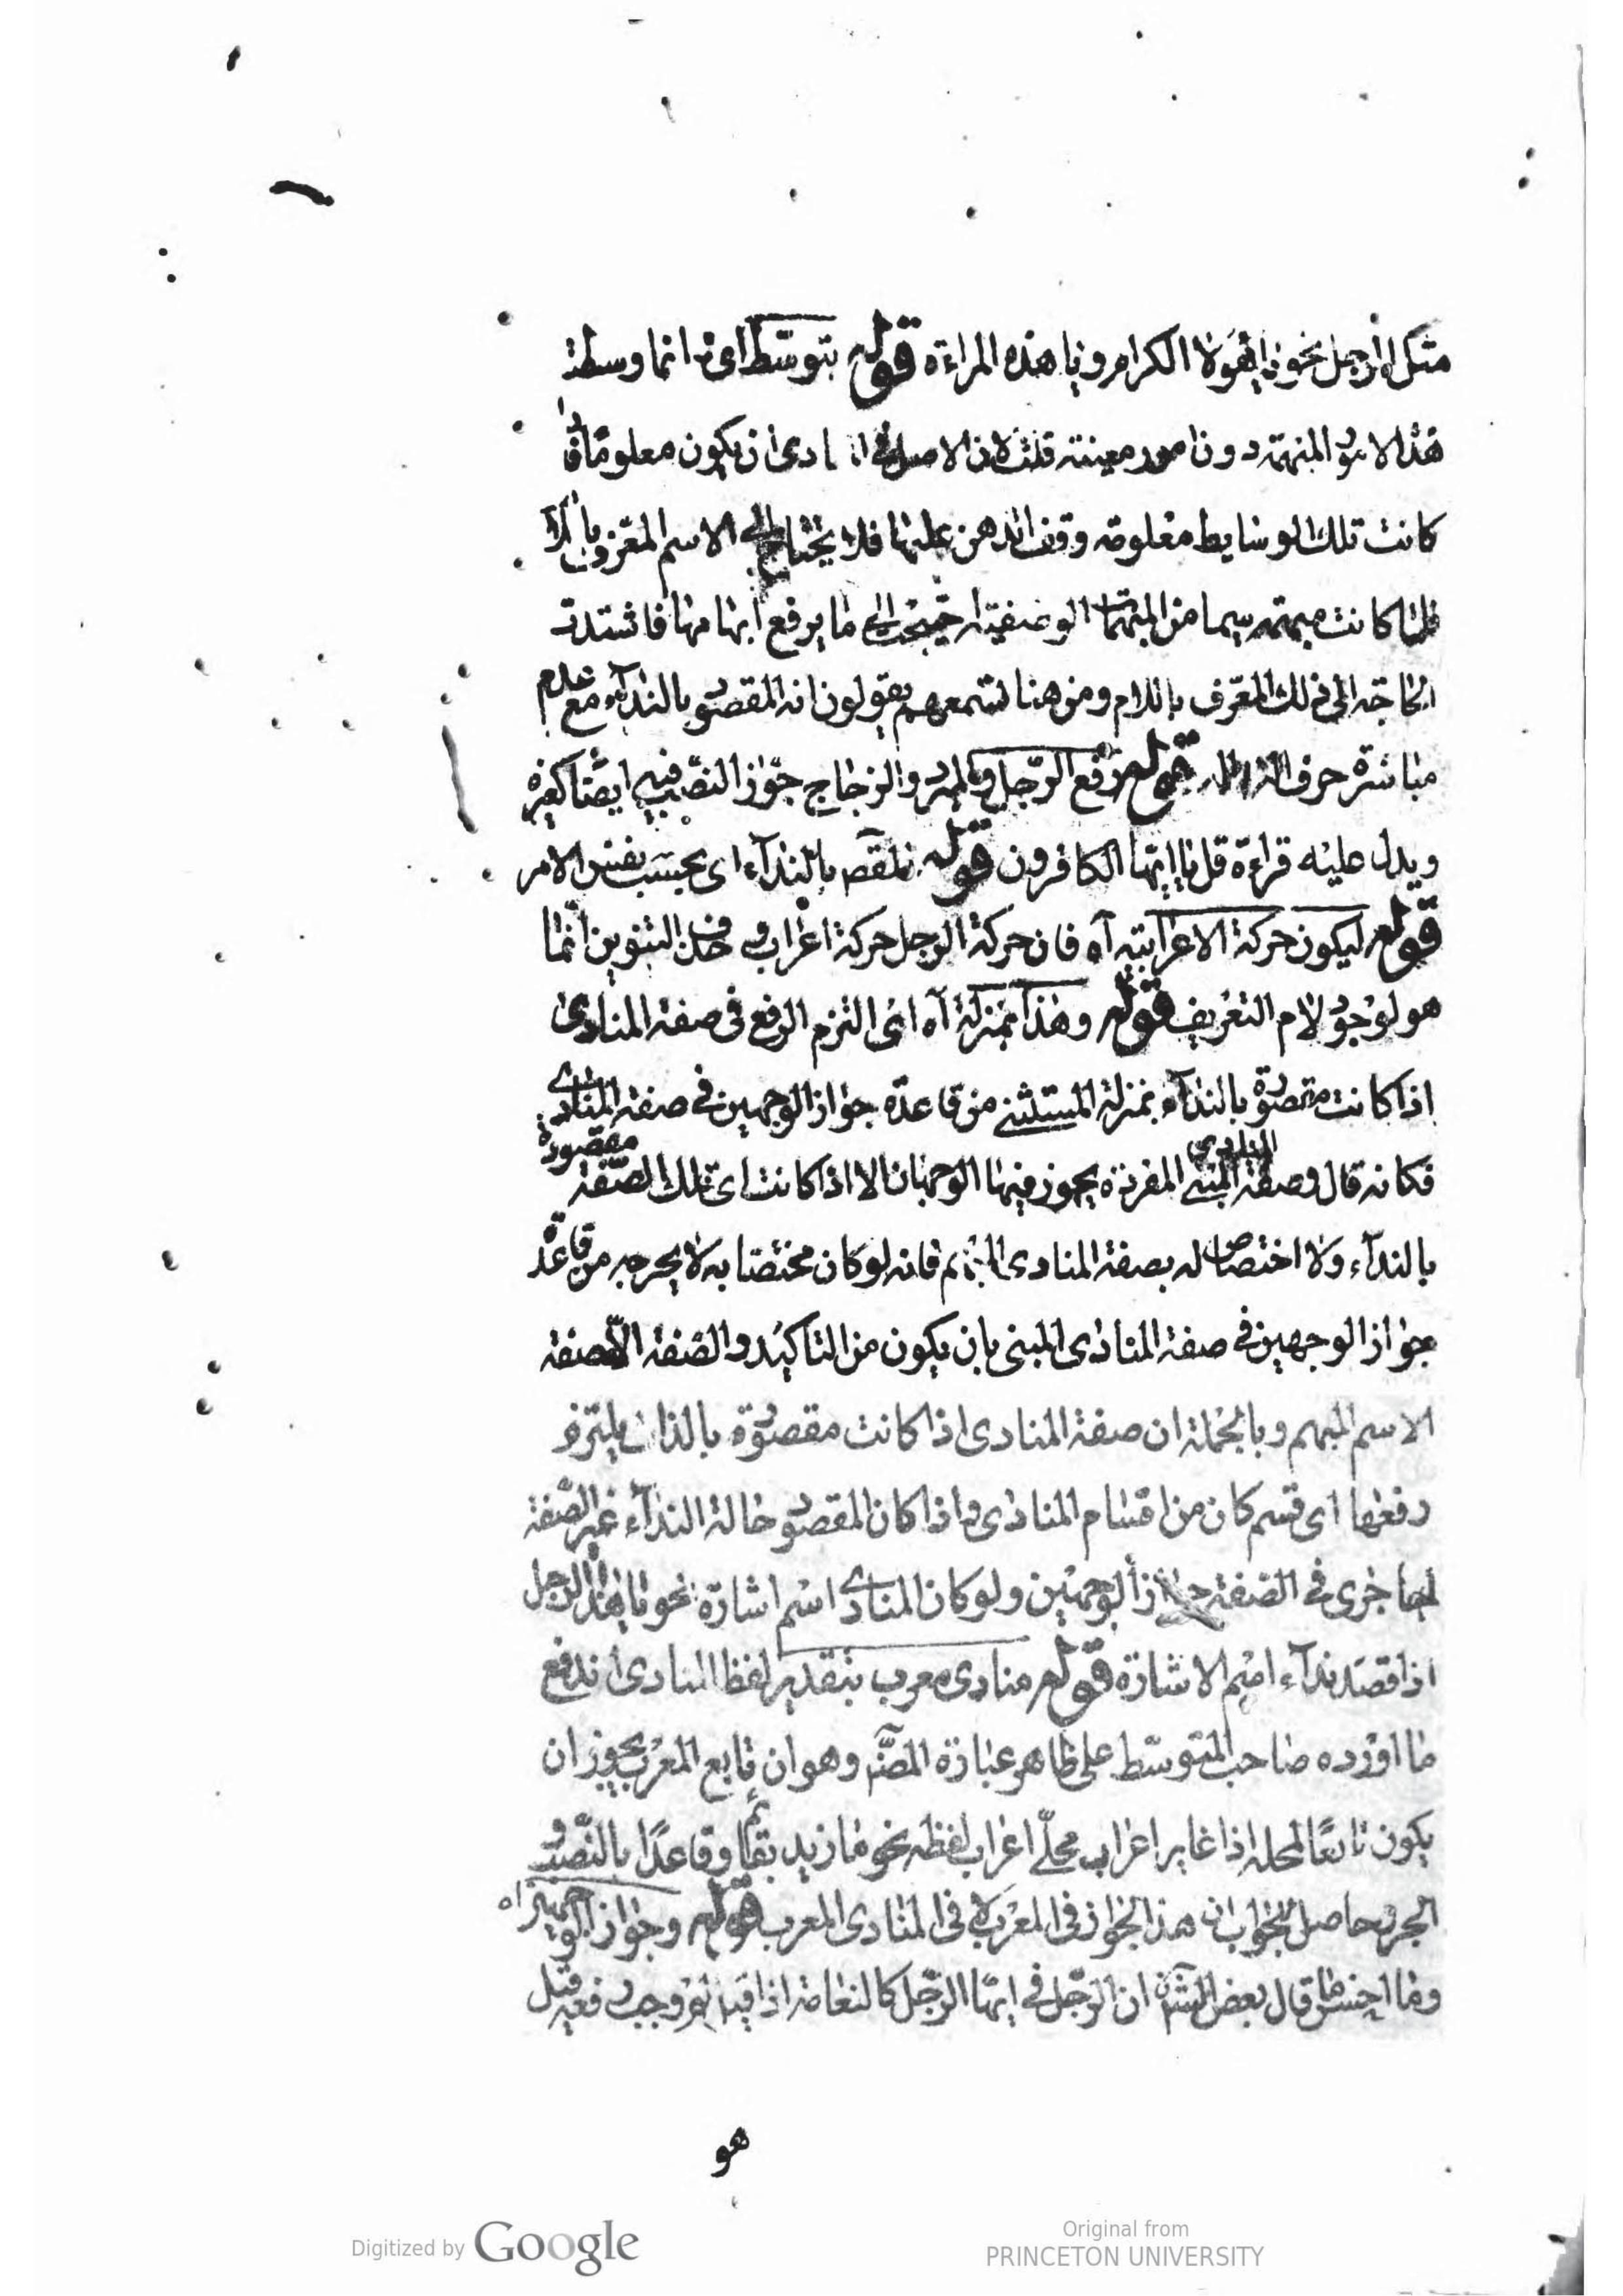 مثل الرجل نحو يا هؤلاء الكرام ويا هذه المراءة قوله بتوسط اى انما وسطة
هذا الامور المبهمة دون امور معينة قلت لان الاصل فى ادى ان يكون معلوما فاذا
كانت تلك الوسايط معلومة وقف الذهن عليها فلا يحتاج الى الاسم المعرف باللام
فلما كانت مبهمة سيما من المبهمات الوضعية احتيجت الى ما يرفع ابهامها فاشتدت
الحاجة الى ذلك المعرف باللام ومن هنا تسمعهم يقولون انه المقصود بالنداء مع عدم
مباشرة حرف النداء له قوله رفع الرجل والمبرد والزجاج جوز النصب فيه ايضا كغيره
ويدل عليه قراءة قل يا ايها الكافرون قوله بالنداء اى بحسب نفس الامر
قوله ليكون حركة الاعرابية آه فان حركة الرجل حركة اعراب وحذف التنوين انما
هو لوجود لام التعريف قوله وهذا بمنزلة آه اى التزم الرفع فى صفة المنادى
اذا كانت مقصودة بالنداء بمنزلة المستثنى من قاعدة جواز الوجهين فى صفة المنادى
فكانه قال وصفة المنادى المبنى المفردة يجوز فيها الوجهان الا اذا كانت اى تلك الصفة مقصودة
بالنداء ولا اختصاص له بصفة المنادى المبهم فانه لو كان مختصا به لا يخرجه من قاعدة
جواز الوجهين فى صفة المنادى المبنى بان يكون من التاكيد والصفة الا صفة
الاسم المبهم وبالجملة ان صفة المنادى اذا كانت مقصودة بالذات يلتزم
رفعها اى قسم كان من اقسام المنادى واذا كان المقصود حالة النداء غير الصفة
جرى فى الصفة جواز الوجهين ولو كان المنادى اسم اشارة نحو يا هذا الرجل
اذا قصد نداء اسم الاشارة قوله منادى معرب بتقدير لفظ المنادى اندفع
ما اورده صاحب المتوسط على ظاهر عبارة المص وهو ان تابع المعرب يجوز ان
يكون تابعا لمحله اذا غاير اعراب محله اعراب لفظه نحو ما زيد بقائم وقاعدا بالنصب و
الجر وحاصل الجواب ان هذا الجواز فى المعرب لا فى المنادى المعرب قوله وجواز الوجهين آه
وما احسن ما قال بعض ان الرجل فى ايها الرجل كالنعامة اذا قيل وجب رفعه قيل
هو
Digitized by Google
Original from
PRINCETON UNIVERSITY